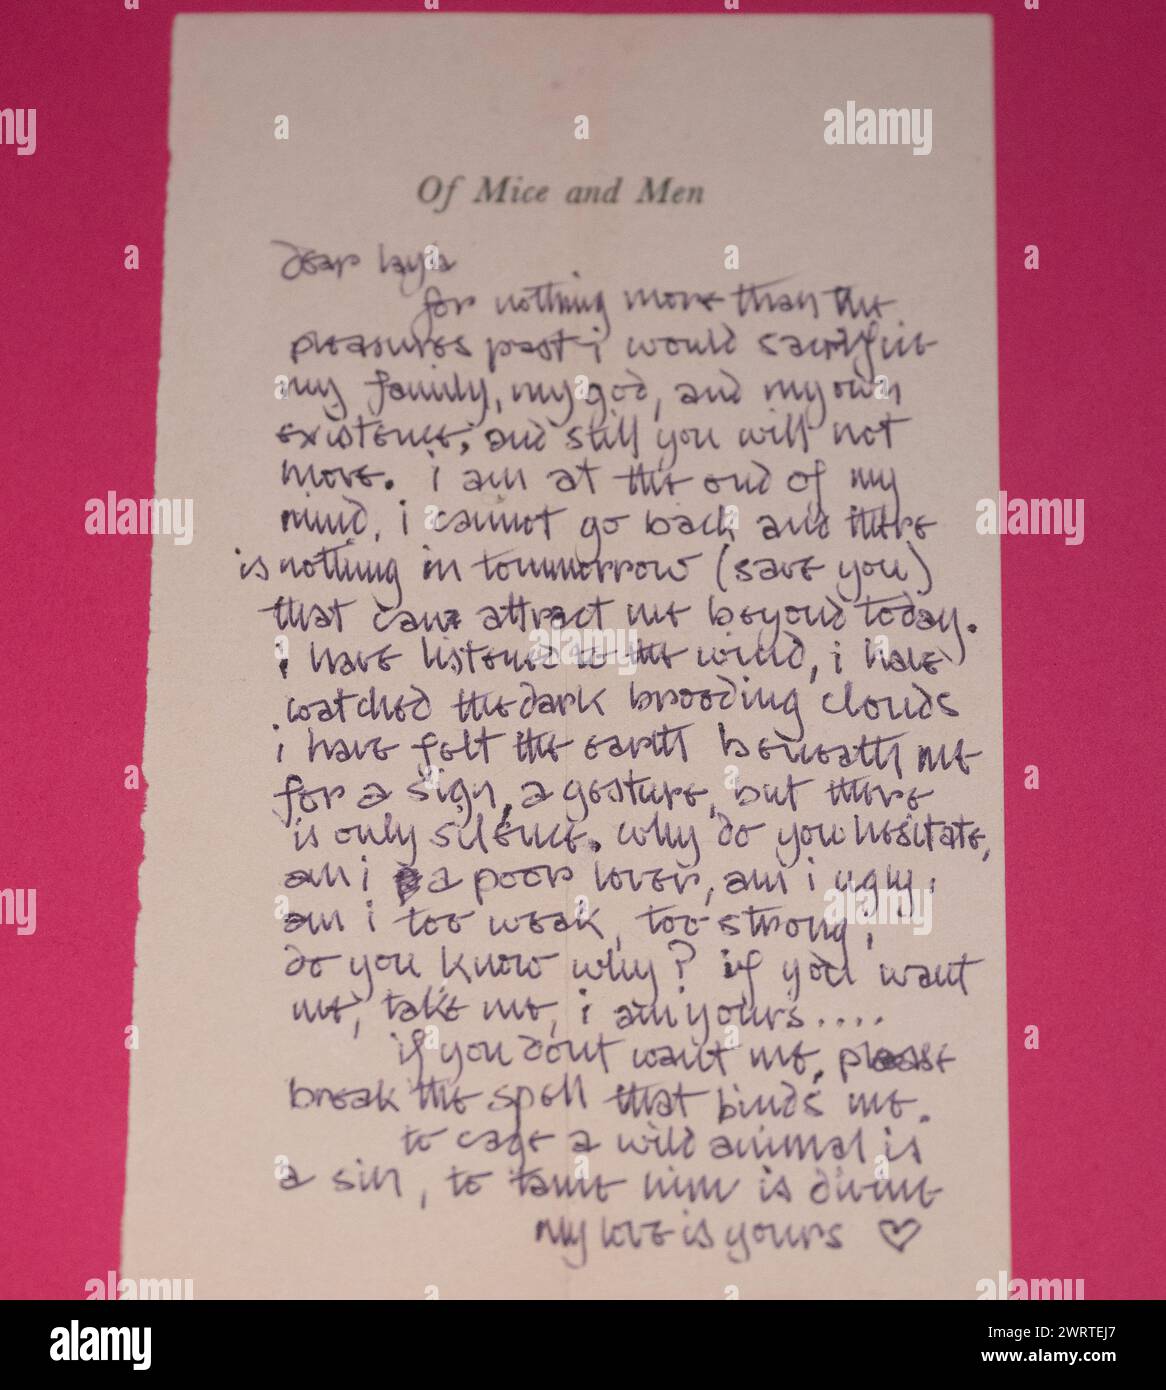 Of Mice and Men
dear layla
for nothing more than the
pleasures past i would sacrifice
my family, my god, and my own
existence, and still you will not
move. i am at the end of my
mind, i cannot go back and there
is nothing in tommorrow (save you)
that can attract me beyond today.
i have listened to the wind, i have
watched the dark brooding clouds
i have felt the earth beneath me
for a sign, a gesture, but there
is only silence. why do you hesitate,
am i a poor lover, am i ugly,
am i too weak, too strong,
do you know why? if you want
me, take me, i am yours....
if you dont want me, please
break the spell that binds me.
to cage a wild animal is
a sin, to tame him is divine
my love is yours ♡
a
alamy
alamy
Image ID: 2WRTEJ7
www.alamy.com